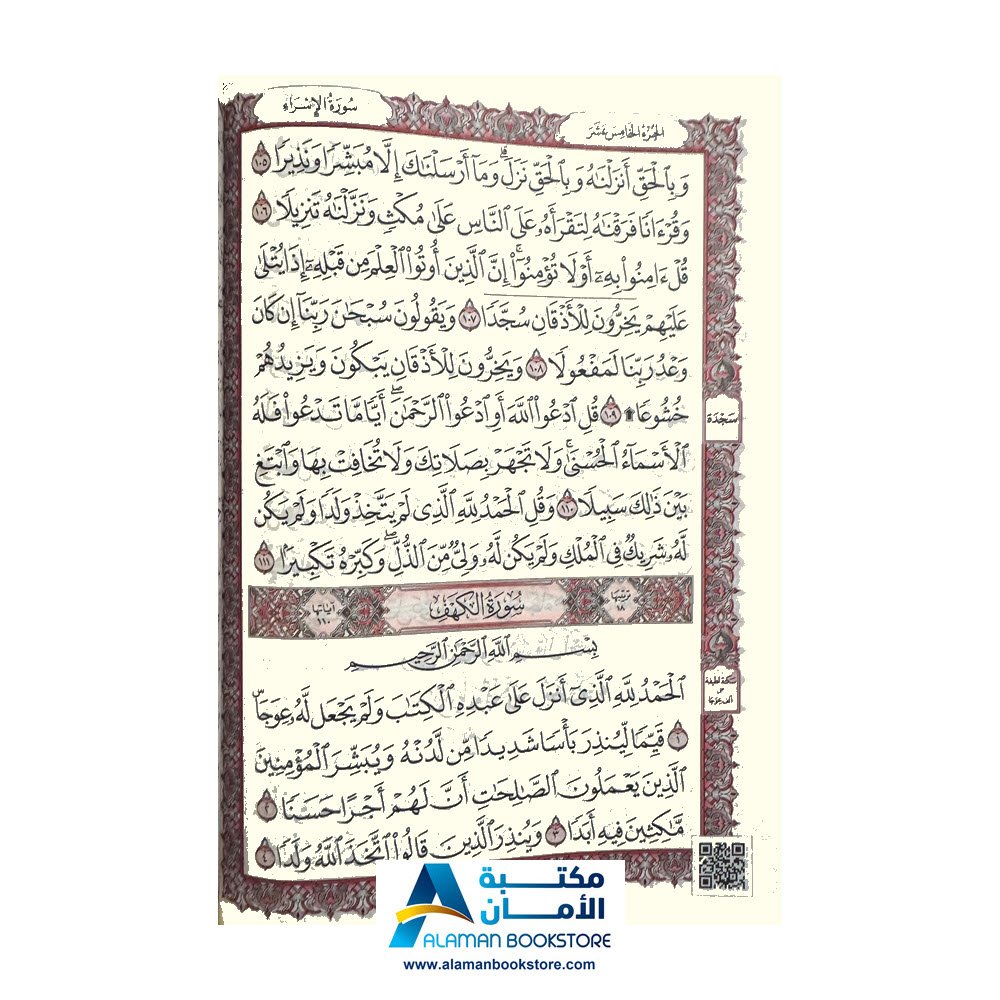 سُورَةُ الإِسْرَاءِ
الجُزْءُ الخَامِسَ عَشَرَ
وَبِٱلْحَقِّ أَنزَلْنَٰهُ وَبِٱلْحَقِّ نَزَلَ ۗ وَمَآ أَرْسَلْنَٰكَ إِلَّا مُبَشِّرًا وَنَذِيرًا ١٠٥
وَقُرْءَانًا فَرَقْنَٰهُ لِتَقْرَأَهُۥ عَلَى ٱلنَّاسِ عَلَىٰ مُكْثٍ وَنَزَّلْنَٰهُ تَنزِيلًا ١٠٦
قُلْ ءَامِنُوا۟ بِهِۦٓ أَوْ لَا تُؤْمِنُوٓا۟ ۚ إِنَّ ٱلَّذِينَ أُوتُوا۟ ٱلْعِلْمَ مِن قَبْلِهِۦٓ إِذَا يُتْلَىٰ
عَلَيْهِمْ يَخِرُّونَ لِلْأَذْقَانِ سُجَّدًا ١٠٧ وَيَقُولُونَ سُبْحَٰنَ رَبِّنَآ إِن كَانَ
وَعْدُ رَبِّنَا لَمَفْعُولًا ١٠٨ وَيَخِرُّونَ لِلْأَذْقَانِ يَبْكُونَ وَيَزِيدُهُمْ
خُشُوعًا ۩ ١٠٩ قُلِ ٱدْعُوا۟ ٱللَّهَ أَوِ ٱدْعُوا۟ ٱلرَّحْمَٰنَ ۖ أَيًّا مَّا تَدْعُوا۟ فَلَهُ
سَجْدَة
ٱلْأَسْمَآءُ ٱلْحُسْنَىٰ ۚ وَلَا تَجْهَرْ بِصَلَاتِكَ وَلَا تُخَافِتْ بِهَا وَٱبْتَغِ
بَيْنَ ذَٰلِكَ سَبِيلًا ١١٠ وَقُلِ ٱلْحَمْدُ لِلَّهِ ٱلَّذِى لَمْ يَتَّخِذْ وَلَدًا وَلَمْ يَكُن
لَّهُۥ شَرِيكٌ فِى ٱلْمُلْكِ وَلَمْ يَكُن لَّهُۥ وَلِىٌّ مِّنَ ٱلذُّلِّ ۖ وَكَبِّرْهُ تَكْبِيرًۢا ١١١
ترتيبها ١٨
سُورَةُ الكَهْفِ
آياتها ١١٠
بِسْمِ ٱللَّهِ ٱلرَّحْمَٰنِ ٱلرَّحِيمِ
ٱلْحَمْدُ لِلَّهِ ٱلَّذِىٓ أَنزَلَ عَلَىٰ عَبْدِهِ ٱلْكِتَٰبَ وَلَمْ يَجْعَل لَّهُۥ عِوَجَاۜ
سكتة لطيفة
على
ألف عوجا
١ قَيِّمًا لِّيُنذِرَ بَأْسًا شَدِيدًا مِّن لَّدُنْهُ وَيُبَشِّرَ ٱلْمُؤْمِنِينَ
ٱلَّذِينَ يَعْمَلُونَ ٱلصَّٰلِحَٰتِ أَنَّ لَهُمْ أَجْرًا حَسَنًا ٢
مَّٰكِثِينَ فِيهِ أَبَدًا ٣ وَيُنذِرَ ٱلَّذِينَ قَالُوا۟ ٱتَّخَذَ ٱللَّهُ وَلَدًا ٤
مكتبة
الأمان
ALAMAN BOOKSTORE
www.alamanbookstore.com